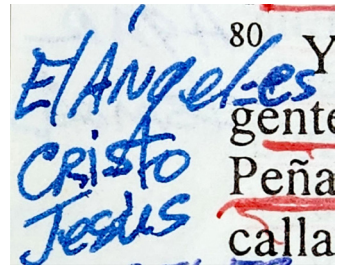 El Ángel-es
Cristo
Jesús
80 Y
gente
Peña
calla